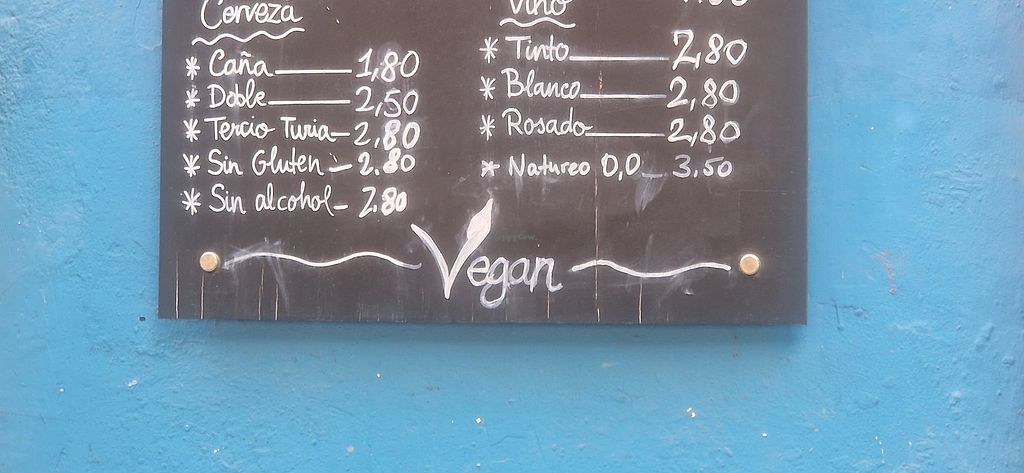 Cerveza
* Caña 1,80
* Doble 2,50
* Tercio Turia 2,80
* Sin Gluten 2.80
* Sin alcohol 2.80
Vino
* Tinto 2,80
* Blanco 2,80
* Rosado 2,80
* Natureo 0,0 3.50
Vegan